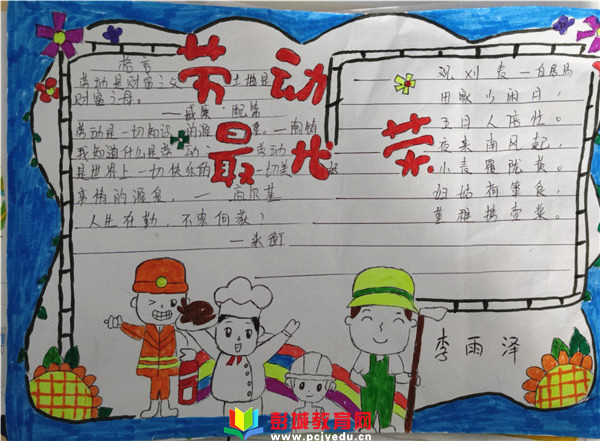 劳动最光荣
格言
劳动是财富之父 土地是
财富之母。
——威廉·配第
劳动是一切知识的源
我知道什么是劳动:劳动
是世界上一切快乐的 一切美 好
事情的源泉。——高尔基
人生在勤,不索何获!
——张衡
观刈麦—白居易
田家少闲日,
五月人倍忙。
夜来南风起,
小麦覆陇黄。
妇姑荷箪食,
童稚携壶浆。
李雨泽
彭城教育网
www.pcjyedu.cn